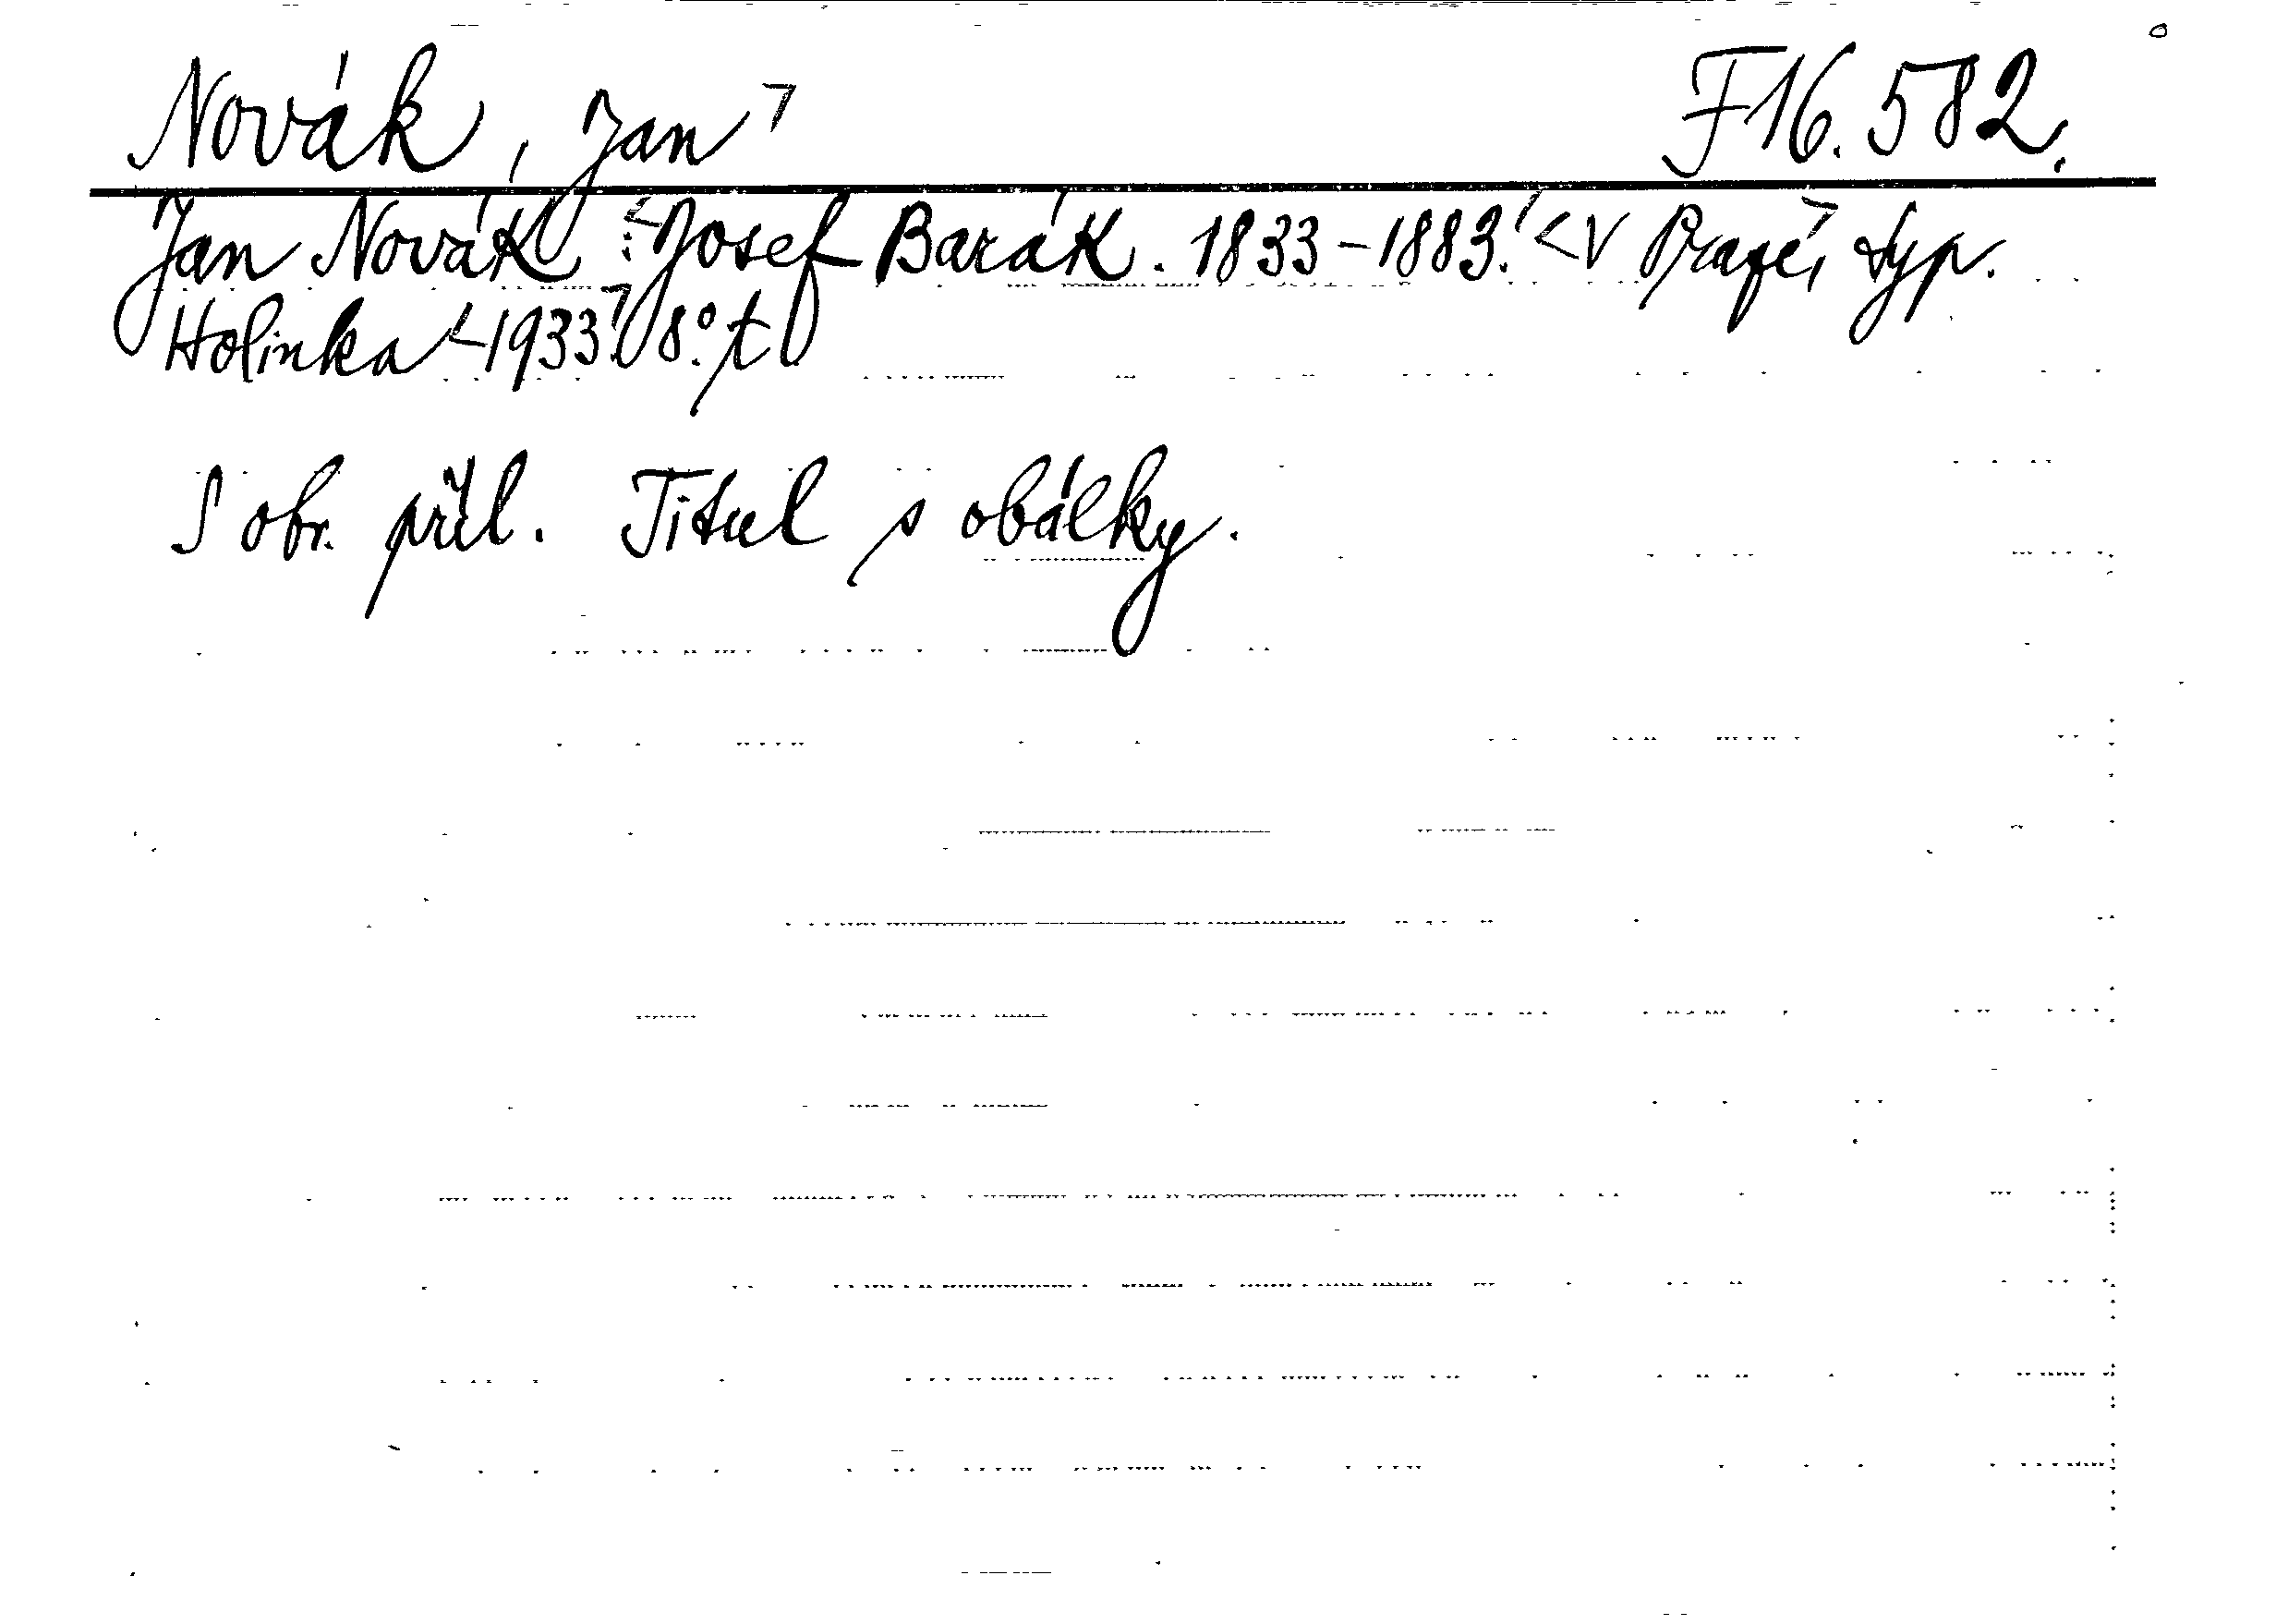 Novák, Jan F 16.582.
Jan Novák: Josef Barák. 1833-1883. V Praze, typ.
Holinka 1933. 8°. t
S obr. příl. Titul s obálky.